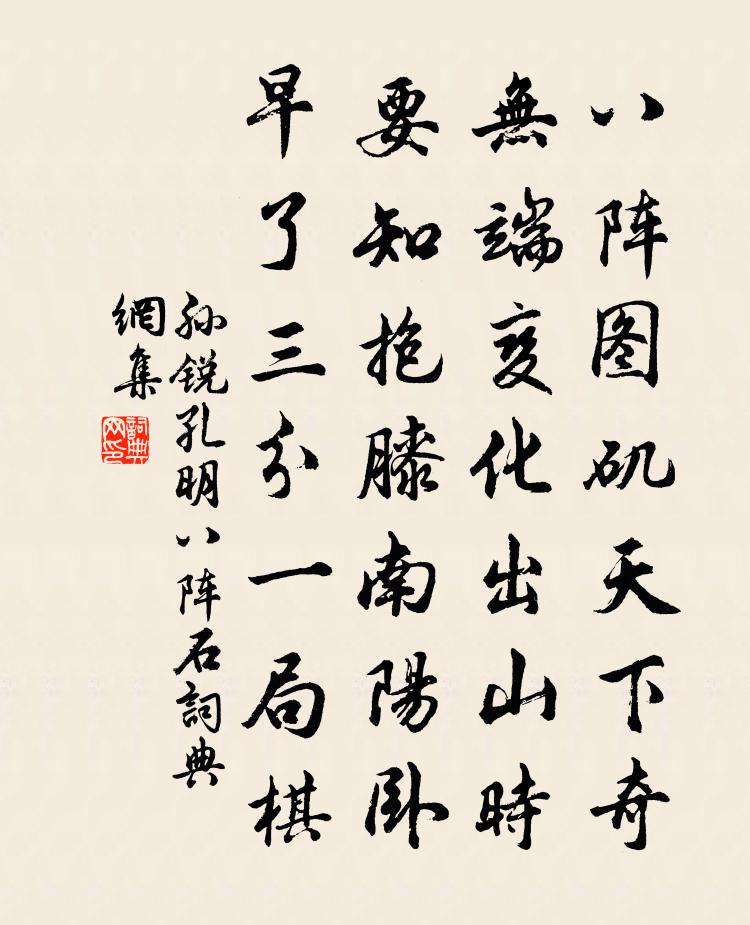 八阵图矶天下奇
無端变化出山時
要知抱膝南陽卧
早了三分一局棋
孙锐孔明八阵石詞典
網集
詞典
网印